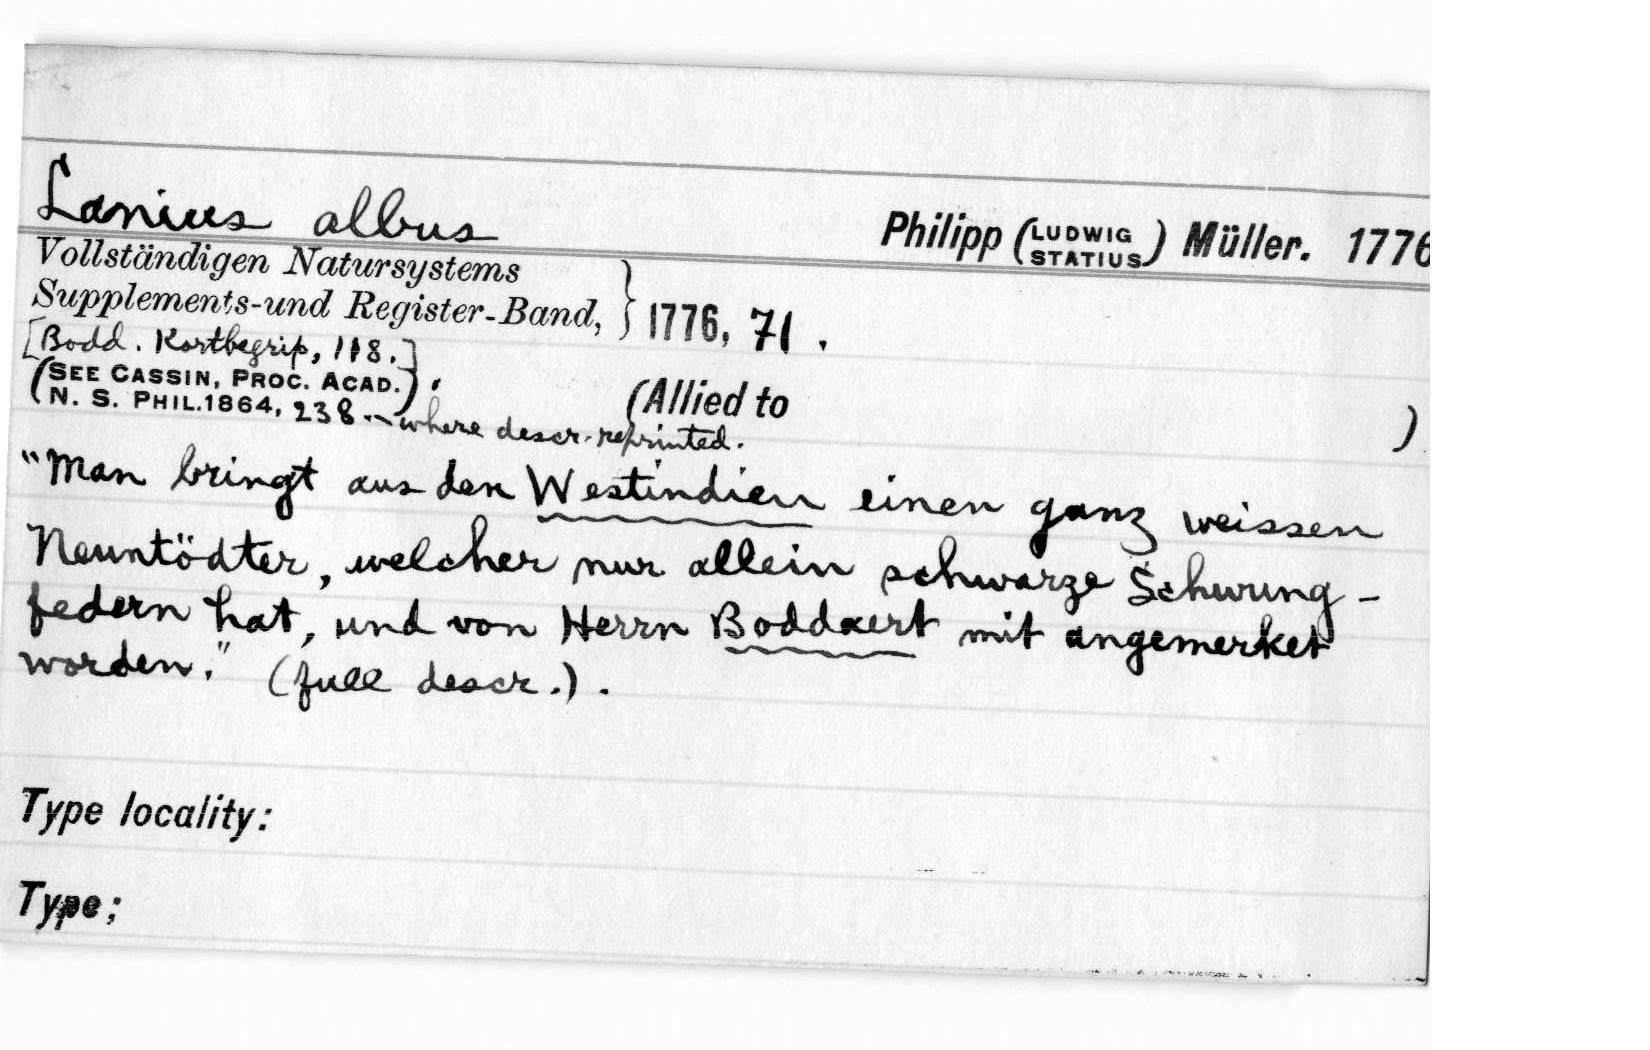 Lanius albus
Philipp (LUDWIG STATIUS) Müller. 1776
Vollständigen Natursystems
Supplements-und Register-Band, } 1776, 71.
[Bodd. Kortbegrip, 118.]
(SEE CASSIN, PROC. ACAD.
N. S. PHIL. 1864, 238.) - where descr. reprinted.
(Allied to )
"Man bringt aus den Westindien einen ganz weissen
Neuntödter, welcher nur allein schwarze Schwung-
federn hat, und von Herrn Boddaert mit angemerket
worden." (full descr.).
Type locality:
Type;